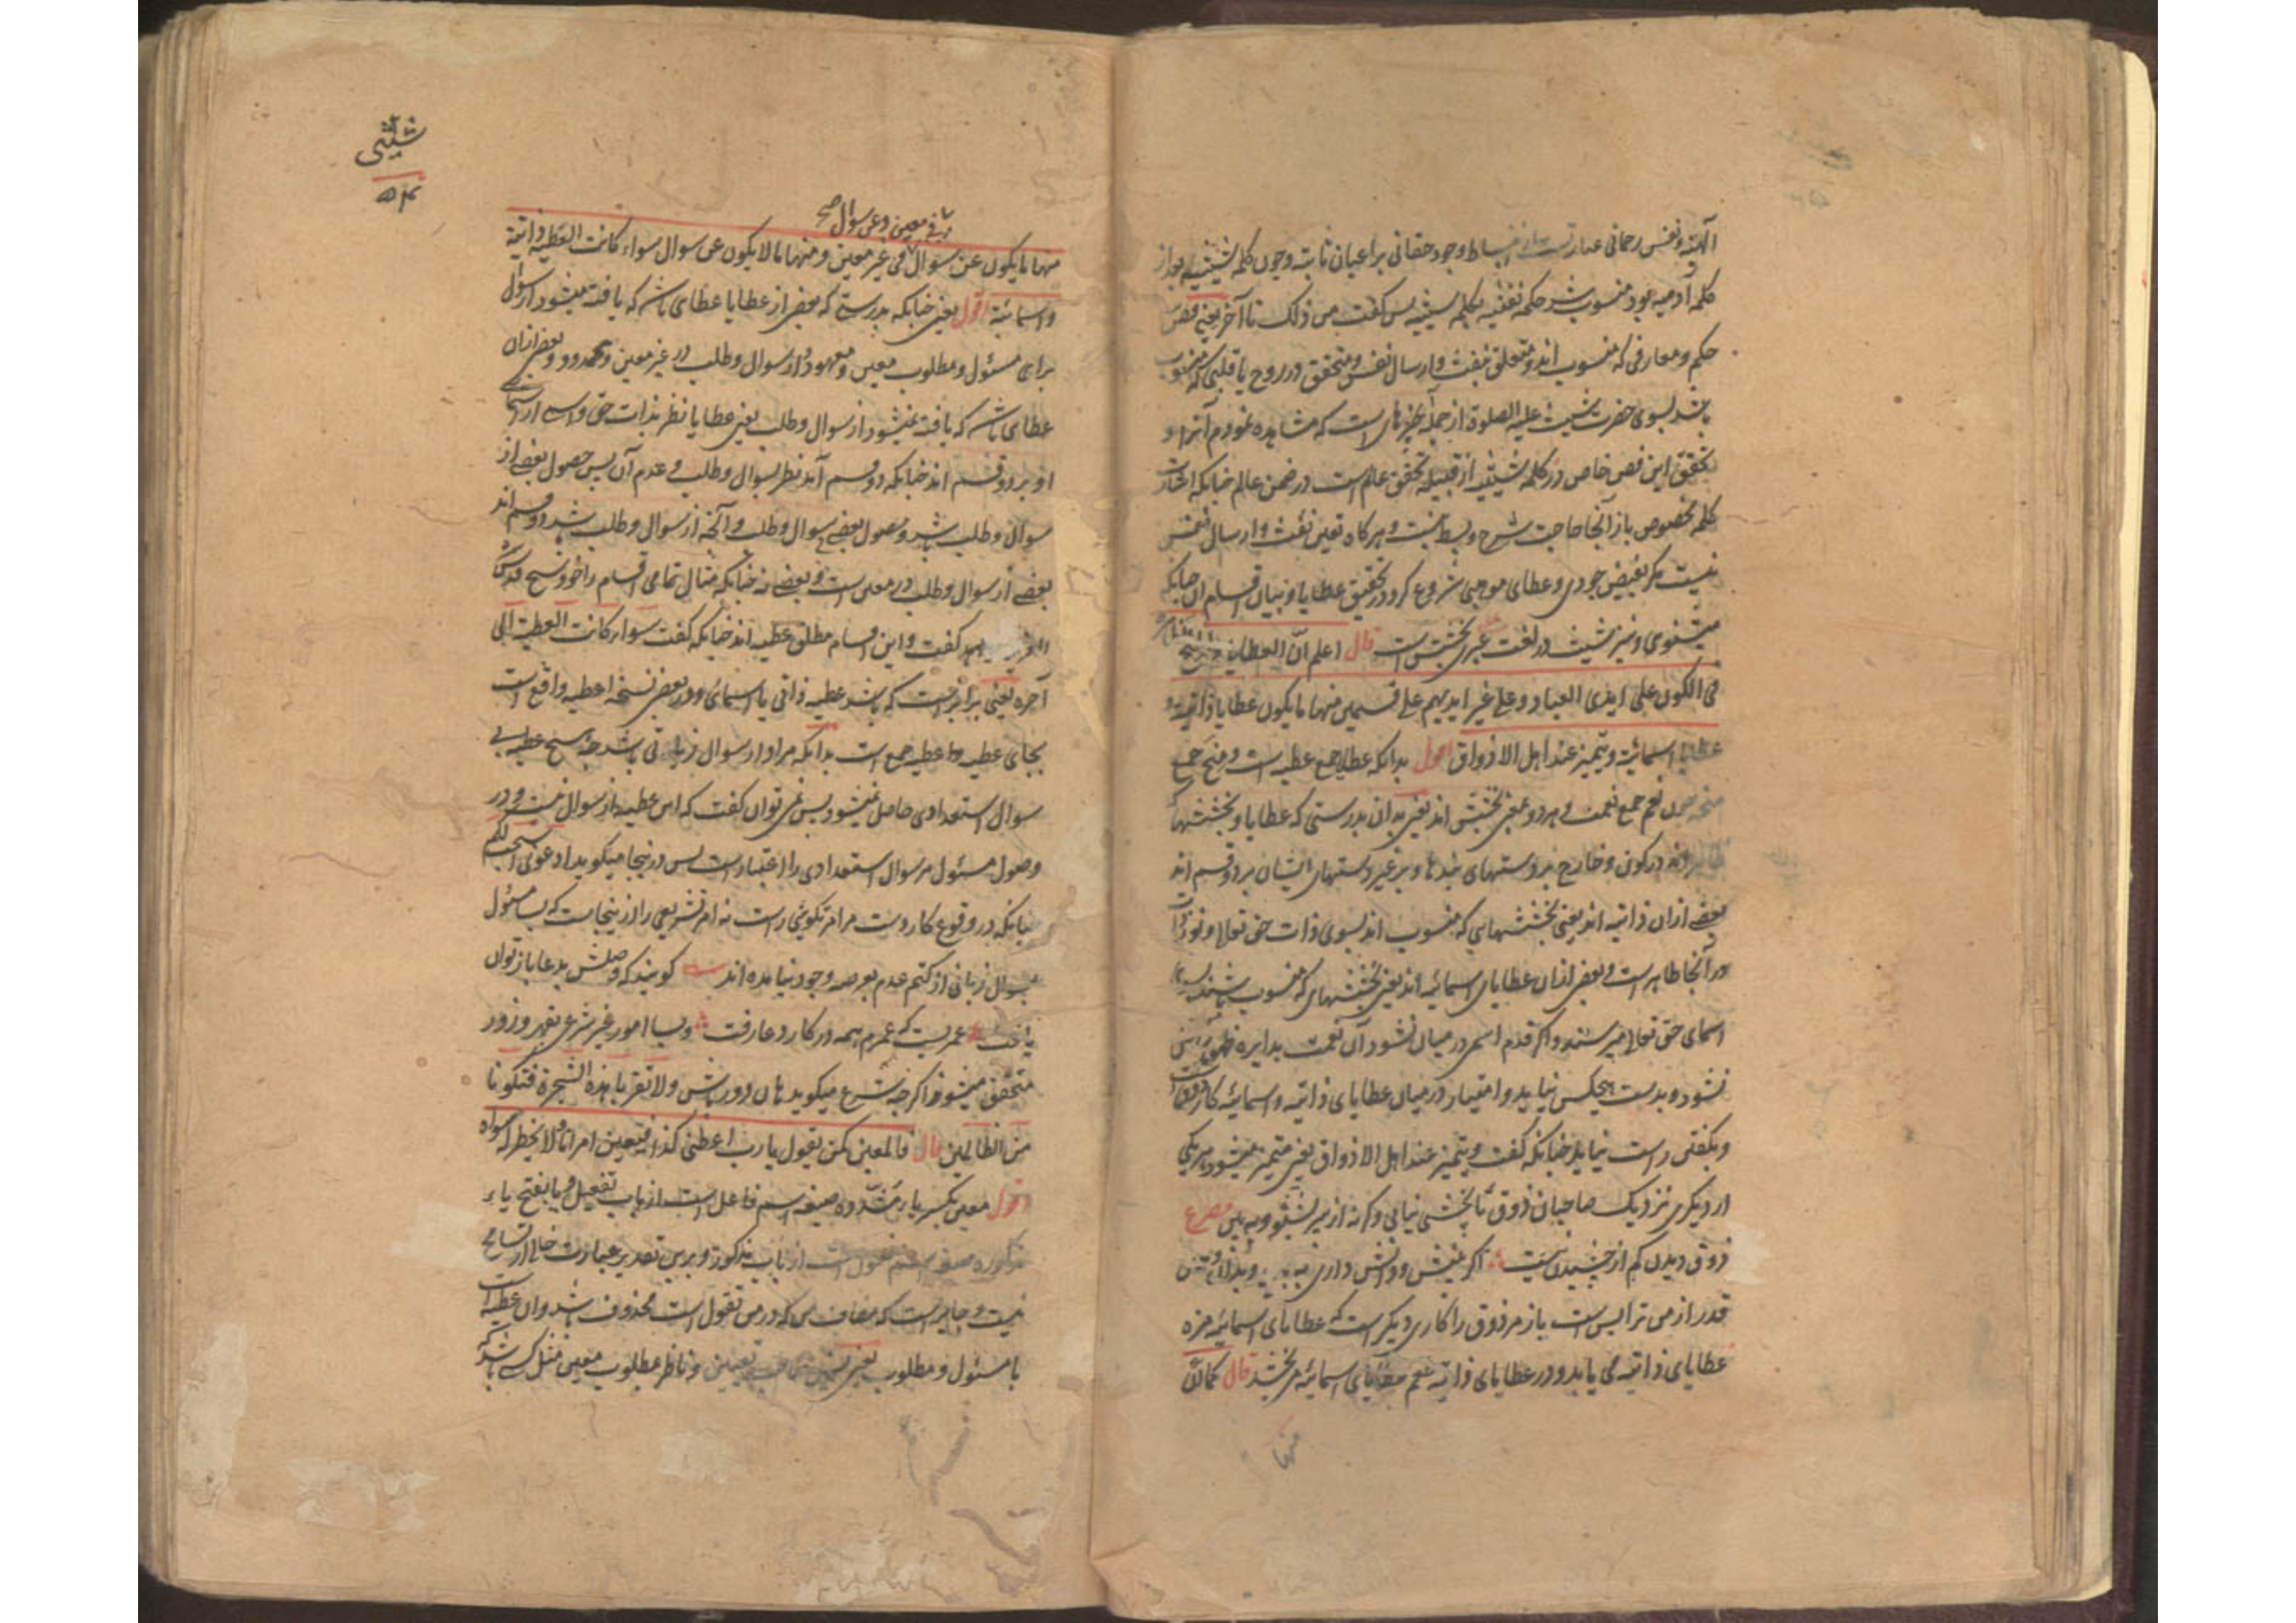 الهیة و نفس رحمانی عبارتست از انبساط وجود حقانی بر اعیان ثابته و چون کلمه شیثیه بعد از
کلمه آدمیه بود منسوب شد حکمة نفثیه بکلمه شیثیه پس گفت من ذلک تا آخر یعنی فص
حکم و معارفی که منسوب اند و متعلق بنفث و ارسال نفس و متحقق در روح یا قلبی که منسوب
باشد بسوی حضرت شیث علیه الصلوة از جمله چیزهای است که مشاهده نمودم آنرا و
تحقق این فص خاص در کلمه شیثیه از قبیله تحقق عالم است در ضمن عالم چنانکه اشارت
کلمه مخصوص باز آنجا حاجت شرح و بسط نیست و هرگاه تعین نفث و ارسال نفس
نیست مگر بفیض جودی و عطای موهبی شروع کرد در تحقیق عطایا و بیان اقسام آن چنانکه
میشنوی و نیز شیث در لغت عبری بخشش است قال اعلم ان العطایا
فی الکون علی ایدی العباد و علی غیر ایدیهم علی قسمین منها ما یکون عطایا ذاتیة و
عطایا اسمائیة و یتمیز عند اهل الاذواق اقول بدانکه عطایا جمع عطیه است و منح جمع
منحه چون نعم جمع نعمت و هر دو بمعنی بخشش اند یعنی بدان بدرستی که عطایا و بخششها
در کون و خارج بر دستهای بندها و بر غیر دستهای ایشان بر دو قسم اند
بعضے ازان ذاتیه اند یعنی بخششهایی که منسوب اند بسوی ذات حق تعالی و نور ذات
در آنجا ظاهر است و بعض ازان عطایای اسمائیه اند یعنی بخششهای که منسوب باشند
اسمای حق تعالی میرسند و اگر قدم اسم در میان نشود آن نعمت بدایره ظهور
نشود و بدست هیچکس نیاید و امتیاز در میان عطایای ذاتیه و اسمائیه کار ذوق است
و بگفتن راست نیاید چنانکه گفت و یتمیز عند اهل الاذواق یعنی متمیز میشود هر یکی
از دیگری نزدیک صاحبان ذوق تا بخشی نیابی وگرنه از میر بشنو و به بین مصرع
ذوق دیدن کم از چشیدن نیست اگر بینش و دانش داری
قدر از من ترا بس است باز مر ذوق را کاری دیگر است که عطایای اسمائیه مزه
عطایای ذاتیه می یابد و در عطایای ذاتیه طعم عطایای اسمائیه می بخشد قال کما ان
منها
شیثی
۵۴
فی معین و عن سوال صح
منها ما یکون عن سوال فی غیر معین و منها ما لا یکون عن سوال سواء کانت العطیة ذاتیة
و اسمائیة اقول یعنی چنانکه بدرستی که بعض از عطایا عطای باشد که یافته میشود از سوال
برای مسئول و مطلوب معین و معهود و از سوال و طلب در غیر معین و محدود و بعض ازان
عطای باشد که یافته نمیشود از سوال و طلب یعنی عطایا نظر بذات حق و اسمی از اسمای
او بر دو قسم اند چنانکه دو قسم آند نظر بسوال و طلب و عدم آن پس حصول بعضے از
سوال و طلب باشد و حصول بعضے بی سوال و طلب و آنچه از سوال و طلب باشد دو قسم اند
بعضے از سوال و طلب در معین است و بعضے نه چنانکه مثال تمامی اقسام را خود شیخ قدس سره
گفت و این اقسام مطلق عطیه اند چنانکه گفت سواء کانت العطیة الی
آخره یعنی برابر است که باشد عطیه ذاتی یا اسمائی و در بعض نسخه اعطیه واقع است
بجای عطیه و اعطیه جمع است بدانکه مراد از سوال زبانی باشد چه هیچ عطیه بی
سوال استعدادی حاصل نمیشود پس نمی توان گفت که این عطیه از سوال نیست و در
وصول مسئول مر سوال استعدادی را اعتبار است پس در اینجا میگوید ادعونی استجب لکم
چنانکه در وقوع کار دست مر امر تکوینی راست نه امر تشریعی را از اینجاست که بسا مسئول
بسوال زبانی از کتم عدم بعرصه وجود نیامده اند گویند که وصلش بدعا باز توان
یافت عمریست که عمرم همه در کار دعا رفت و بسا امور غیر شرع بقهر و زور
متحقق میشود اگرچه شرع میگوید هان دور باش و لا تقربا هذه الشجرة فتکونا
من الظالمین قال فالمعین کمن یقول یا رب اعطنی کذا فیعین امرا ما لا یخطر له سواه
اقول معین بکسر یاء مشدده صیغه اسم فاعل است از باب تفعیل و یا بفتح یاء
مذکوره صیغه اسم مفعول است از باب مذکور و برین تقدیر عبارت خالی از تسامح
نیست و جایز است که مضاف من که در من تقول است محذوف باشد و آن عطیه است
با مسئول و مطلوب یعنی تعیین و ناظر مطلوب معین مثل کسی باشد که